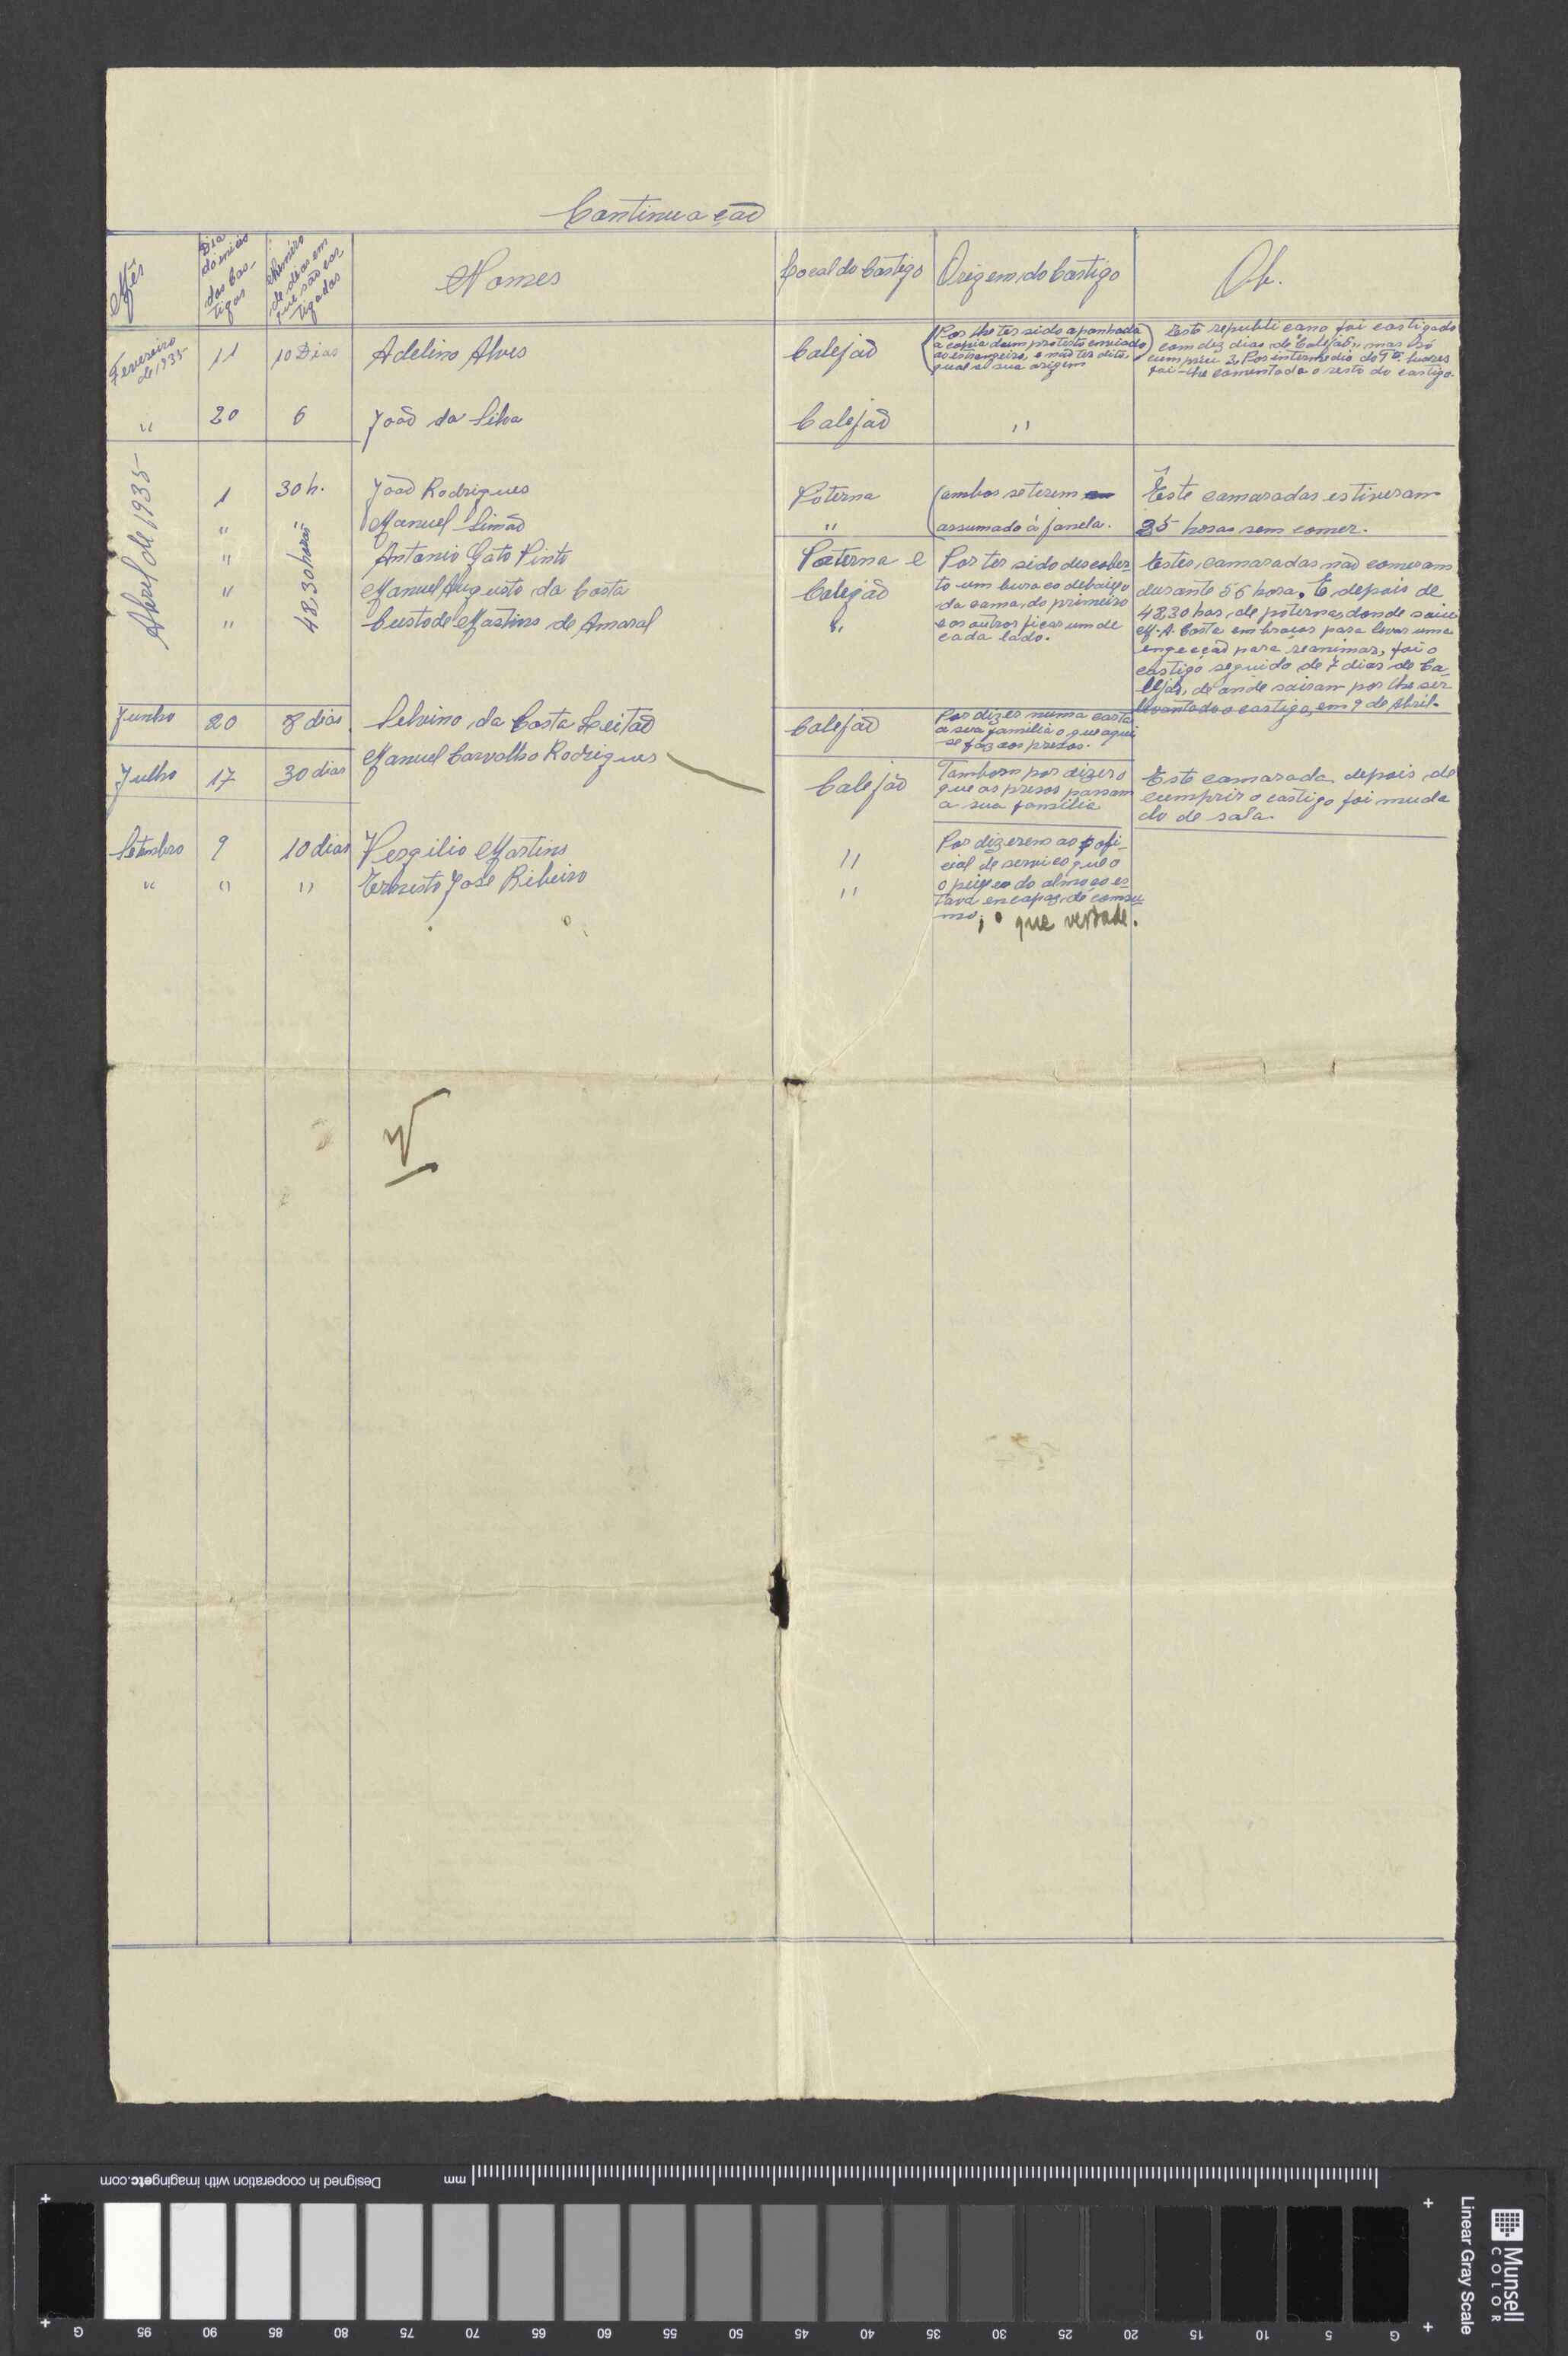 Continuação
Mês
Dia do início dos Castigos
Número de dias em que são castigados
Nomes
Local do Castigo
Origem do Castigo
Ob.
Fevereiro de 1935 11 10 Dias Adelino Alves Calejão
(Por lhe ter sido apanhada
a copia dum protesto enviado
ao estrangeiro, e não ter dito,
qual a sua origem)
Este republicano foi castigado
com dez dias de Calejão, mas só
cumpriu 2. Por intermedio do Tte.
foi-lhe comentada o resto do castigo.
" 20 6 João da Silva Calejão "
Abril de 1935
1 30 h. João Rodrigues Poterna
" " Manuel Simão "
(ambos se terem
assumado á janela.
Êste camaradas estiveram
25 horas sem comer.
" Antonio Gato Pinto Poterna e
" 48,30 horas Manuel Augusto da Costa Calejão
" Custode Martins de Amaral "
Por ter sido descober-
to um buraco debaixo
da cama, do primeiro
e os outros ficar um de
cada lado.
Estes, camaradas, não comeram
durante 56 hora. E depois de
48,30 has, de poterna, donde saiu
M. A. Costa em braços para levar uma
engecção para reanimar, foi o
castigo seguido de 7 dias de Ca-
lejão, de onde sairam por lhe ser
levantado o castigo, em 9 de Abril.
Junho 20 8 dias Selvino da Costa Leitão Calejão
Por dizer numa carta
a sua familia o que aqui
se faz aos presos.
Julho 17 30 dias Manuel Carvalho Rodrigues Calejão
Tambem por dizer o
que os presos passam
a sua familia
Este camarada depois de
cumprir o castigo foi muda
do de sala.
Setembro 9 10 dias Vergilio Martins "
" " " Ernesto José Ribeiro "
Por dizerem ao ofi-
cial de serviço que o
o peixe do almoço es-
tava encapaz de consu-
mo; o que verdade.
Designed in cooperation with imagingetc.com
mm
G 95 90 85 80 75 70 65 60 55 50 45 40 35 30 25 20 15 10 5 G
Munsell
COLOR
Linear Gray Scale